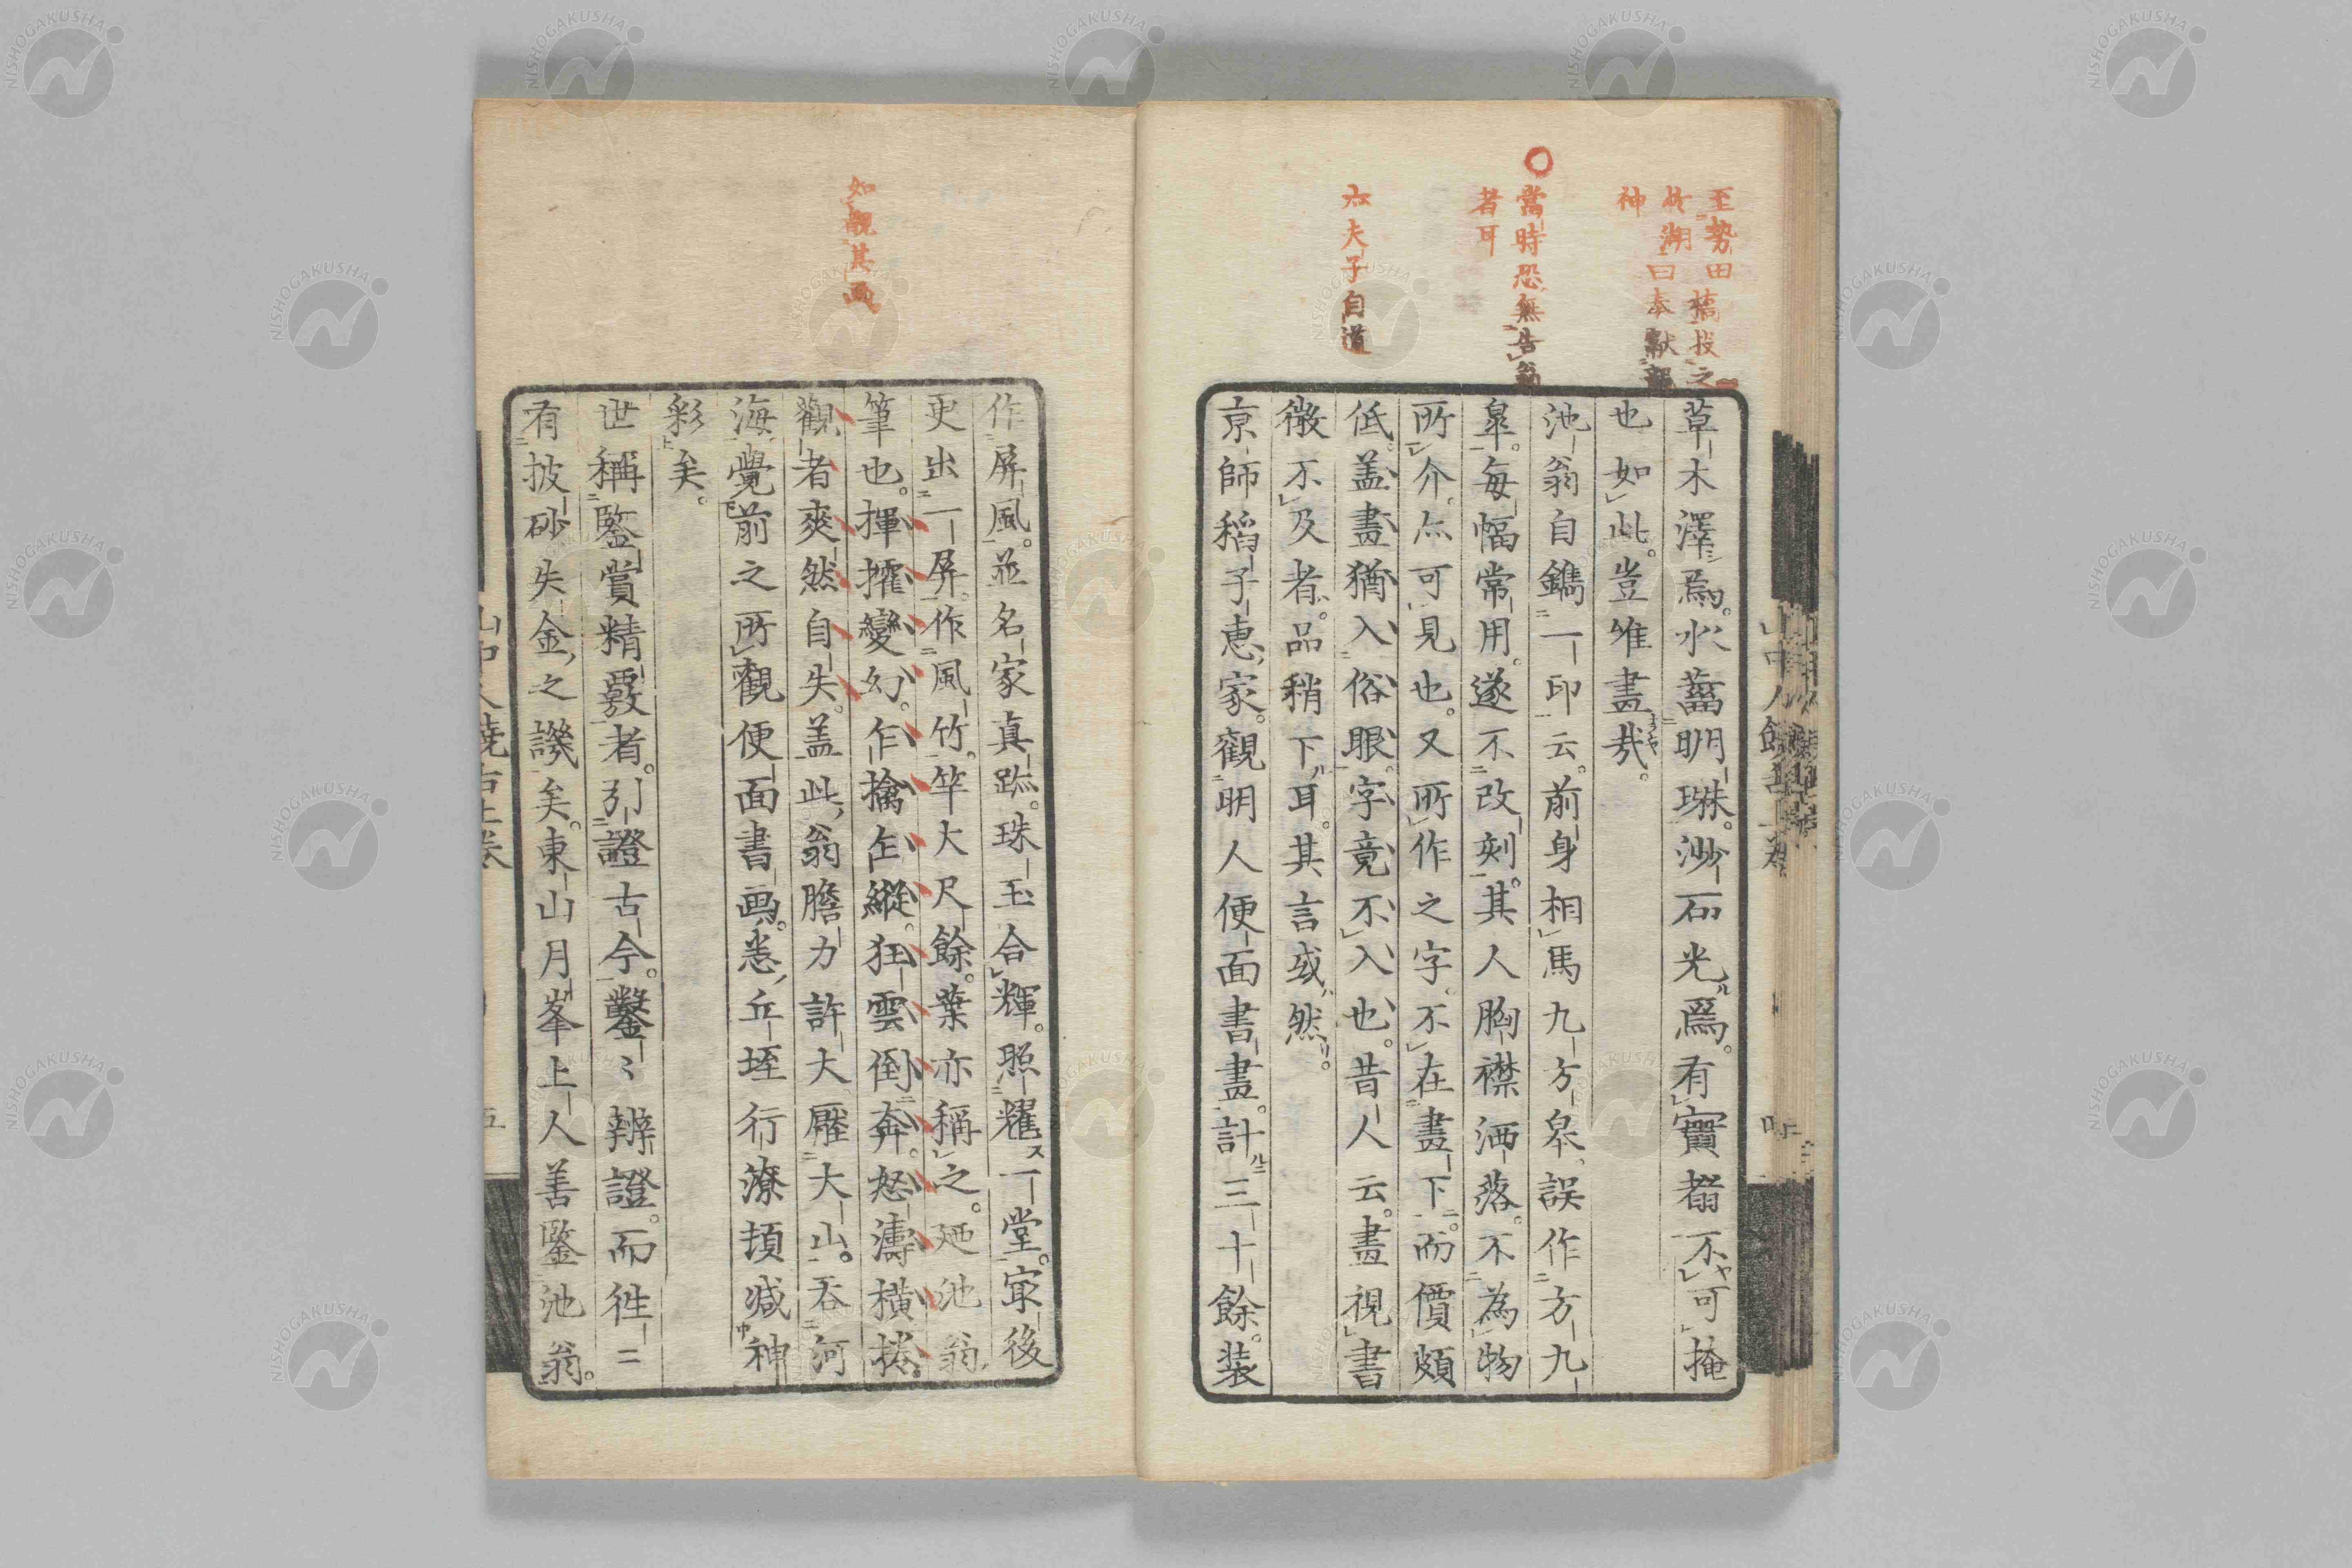 至勢田橋投之
於湖曰奉獻龍
神
當時恐無告翁
者耳
六夫子自道
草木澤焉。水蓄明珠。沙石光爲。有實者不可掩
也如此。豈唯畫哉。
池翁自鐫一印云。前身相馬九方皋。誤作方九
皋。每幅常用。遂不改刻。其人胸襟洒落。不為物
所介。亦可見也。又所作之字。不在畫下。而價頗
低。盖畫猶入俗眼。字竟不入也。昔人云。畫視書
微不及者。品稍下耳。其言或然。
京師稻子惠家。觀明人便面書畫。計三十餘。裝
作屏風。並名家真跡。珠玉合輝。照耀一堂。最後
更出一屏。作風竹。竿大尺餘。葉亦稱之。廼池翁
筆也。揮攉變幻。乍擒乍縱。狂雲倒奔。怒濤橫捲。
觀者爽然自失。盖此翁膽力許大。壓大山。吞河
海。覺前之所觀便面書画。悉丘垤行潦頓減神
彩矣。
世稱鑒賞精覈者。引證古今。鑿〻辨證。而徃二
有披砂失金之譏矣。東山月峯上人善鑒池翁。
如觀其画
山中人饒舌上卷
五